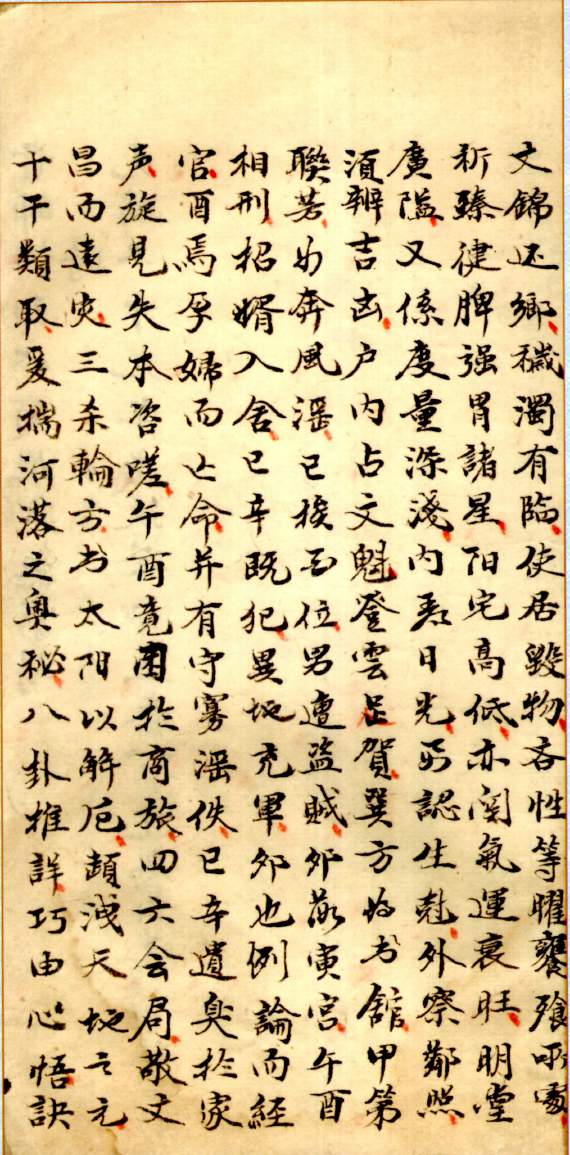 文錦还鄉穢濁有臨使居毀物吝性等曜饔飱所需
祈臻健脾强胃諸星阳宅高低亦関氣運衰旺明堂
廣隘又係度量深淺内瑧日光而認生尅外察鄰照
須辨吉凶户内占文魁登雲足賀巽方为书館甲第
聯芳如奔風滛已挨西位男遭盜賊卯敬寅宫午酉
相刑招婿入舍巳辛既犯異地充軍卯也例論而經
官酉焉孕婦而亡命并有守寡滛佚巳辛遺臭於家
声旋見失本咨嗟午酉竟困於商旅四六会局敬文
昌而遠灾三杀輪方书太阳以解厄顛浅天地之元
十干類取爰揣河落之奥秘八卦推詳巧由心悟訣